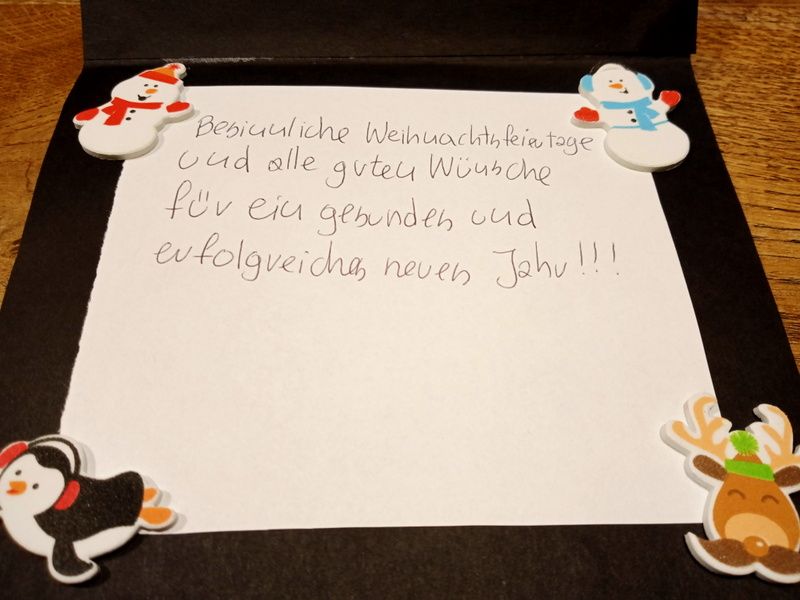 Besinnliche Weihnachtsfeiertage
und alle guten Wünsche
für ein gesundes und
erfolgreiches neues Jahr!!!